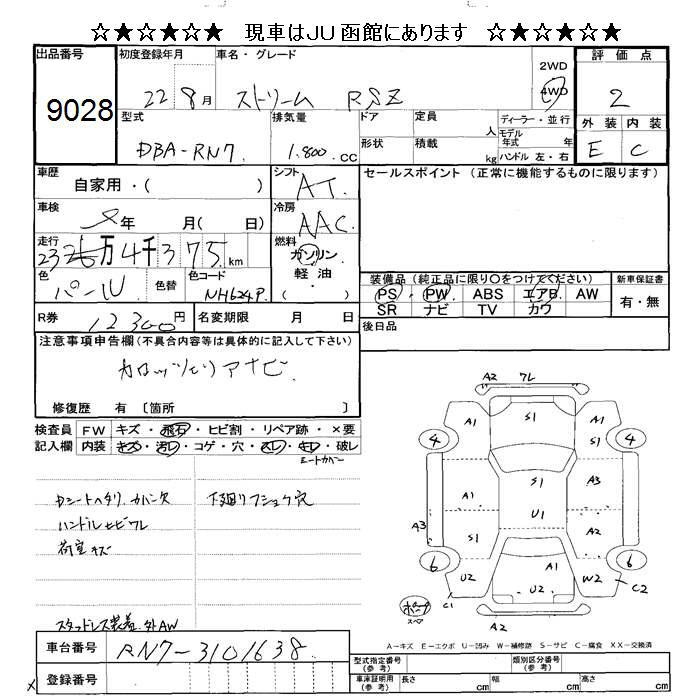 ☆★☆★☆★☆ 現車はJU函館にあります ☆★☆★☆★☆
出品番号
9028
初度登録年月
22 8月
車名・グレード
ストリーム RSZ
2WD
4WD
評価点
2
型式
DBA-RN7
排気量
1.800 CC
ドア
定員
人
形状
積載
kg
ディーラー・並行
モデル年式 年
ハンドル 左・右
外装 内装
E C
車歴
自家用・( )
シフト
AT
セールスポイント (正常に機能するものに限ります)
車検
年 月( 日)
冷房
AAC
走行
23 万4千375 km
燃料
ガソリン
軽油・
( )
色
パール
色替
色コード
NH624P
装備品(純正品に限り○をつけてください)
PS PW ABS エアB AW
SR ナビ TV カワ
新車保証書
有・無
R券
12300円
名変期限 月 日
後日品
注意事項申告欄(不具合内容等は具体的に記入して下さい)
カロッツェリアナビ
修復歴 有 〔箇所 〕
検査員記入欄
FW キズ・飛石・ヒビ割・リペア跡・×要
内装 キズ・汚レ・コゲ・穴・スレ・キレ・破レ
シートカバー
Dシートヘタリ カバー欠
下廻リフショク穴
ハンドルヒビワレ
荷室キズ
スタッドレス装着 外AW
A2 ワレ
A1 S1 A1
4 4
S1
A1 A3
U1
A3 S1 A2
6 6
A1
U2 U2 W2
C1 C2
A2
スペア
A-キズ E-エクボ U-凹み W-補修跡 S-サビ C-腐食 XX-交換済
車台番号
RN7-3101638
登録番号
型式指定番号(参考)
類別区分番号(参考)
車庫証明用(参考)
長さ cm 幅 cm 高さ cm